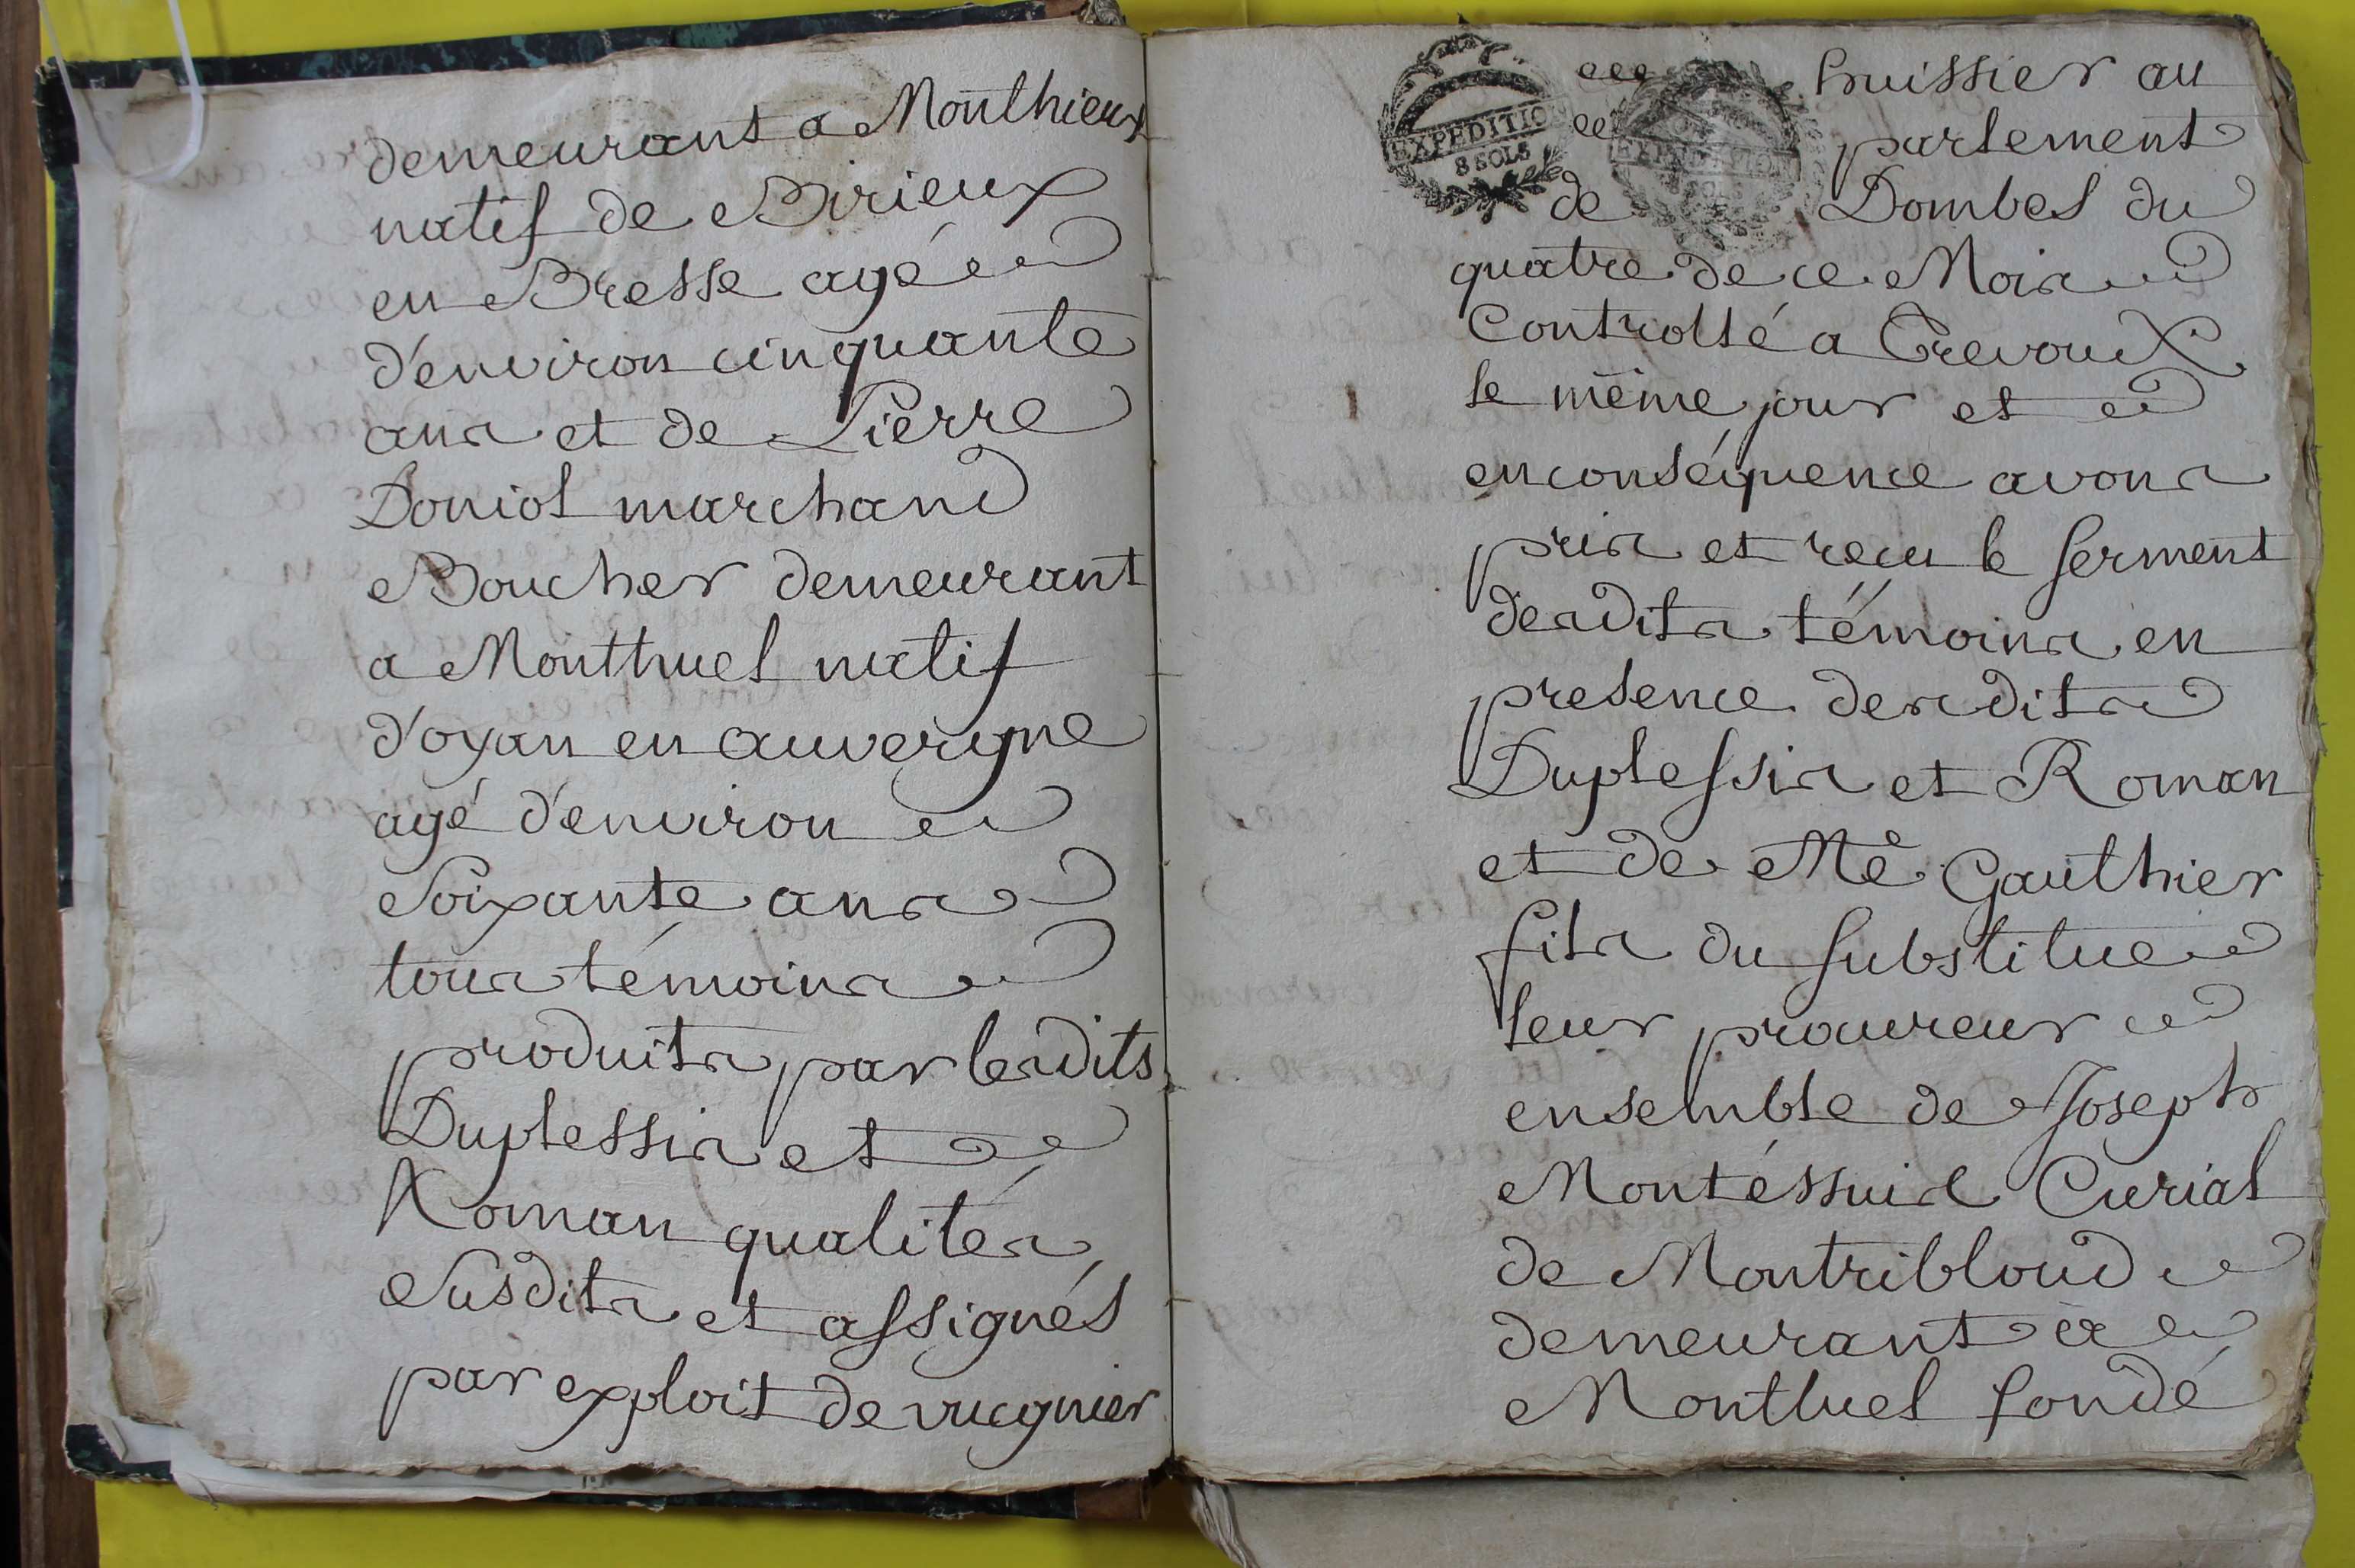 demeurant a Monthieux
natif de Birieux
en Bresse agé
d'environ cinquante
ans et de Pierre
Doniol marchand
Boucher demeurant
a Montluel natif
d'oyan en auvergne
agé d'environ
Soixante ans
tous témoins
produits par lesdits
Duplessis et
Roman qualités
Susdits et assignés
par exploit de
EXPEDITION
8 SOLS
EXPEDITION
huissier au
parlement
de Dombes du
quatre de ce Mois
Controllé a Trevoux
le même jour et
en conséquence avons
pris et recu le serment
desdits témoins en
presence desdits
Duplessis et Roman
et de Me Gauthier
fils du substitue
leur procureur
ensemble de Joseph
Montéssuis Curial
de Montribloud
demeurant à
Montluel fondé